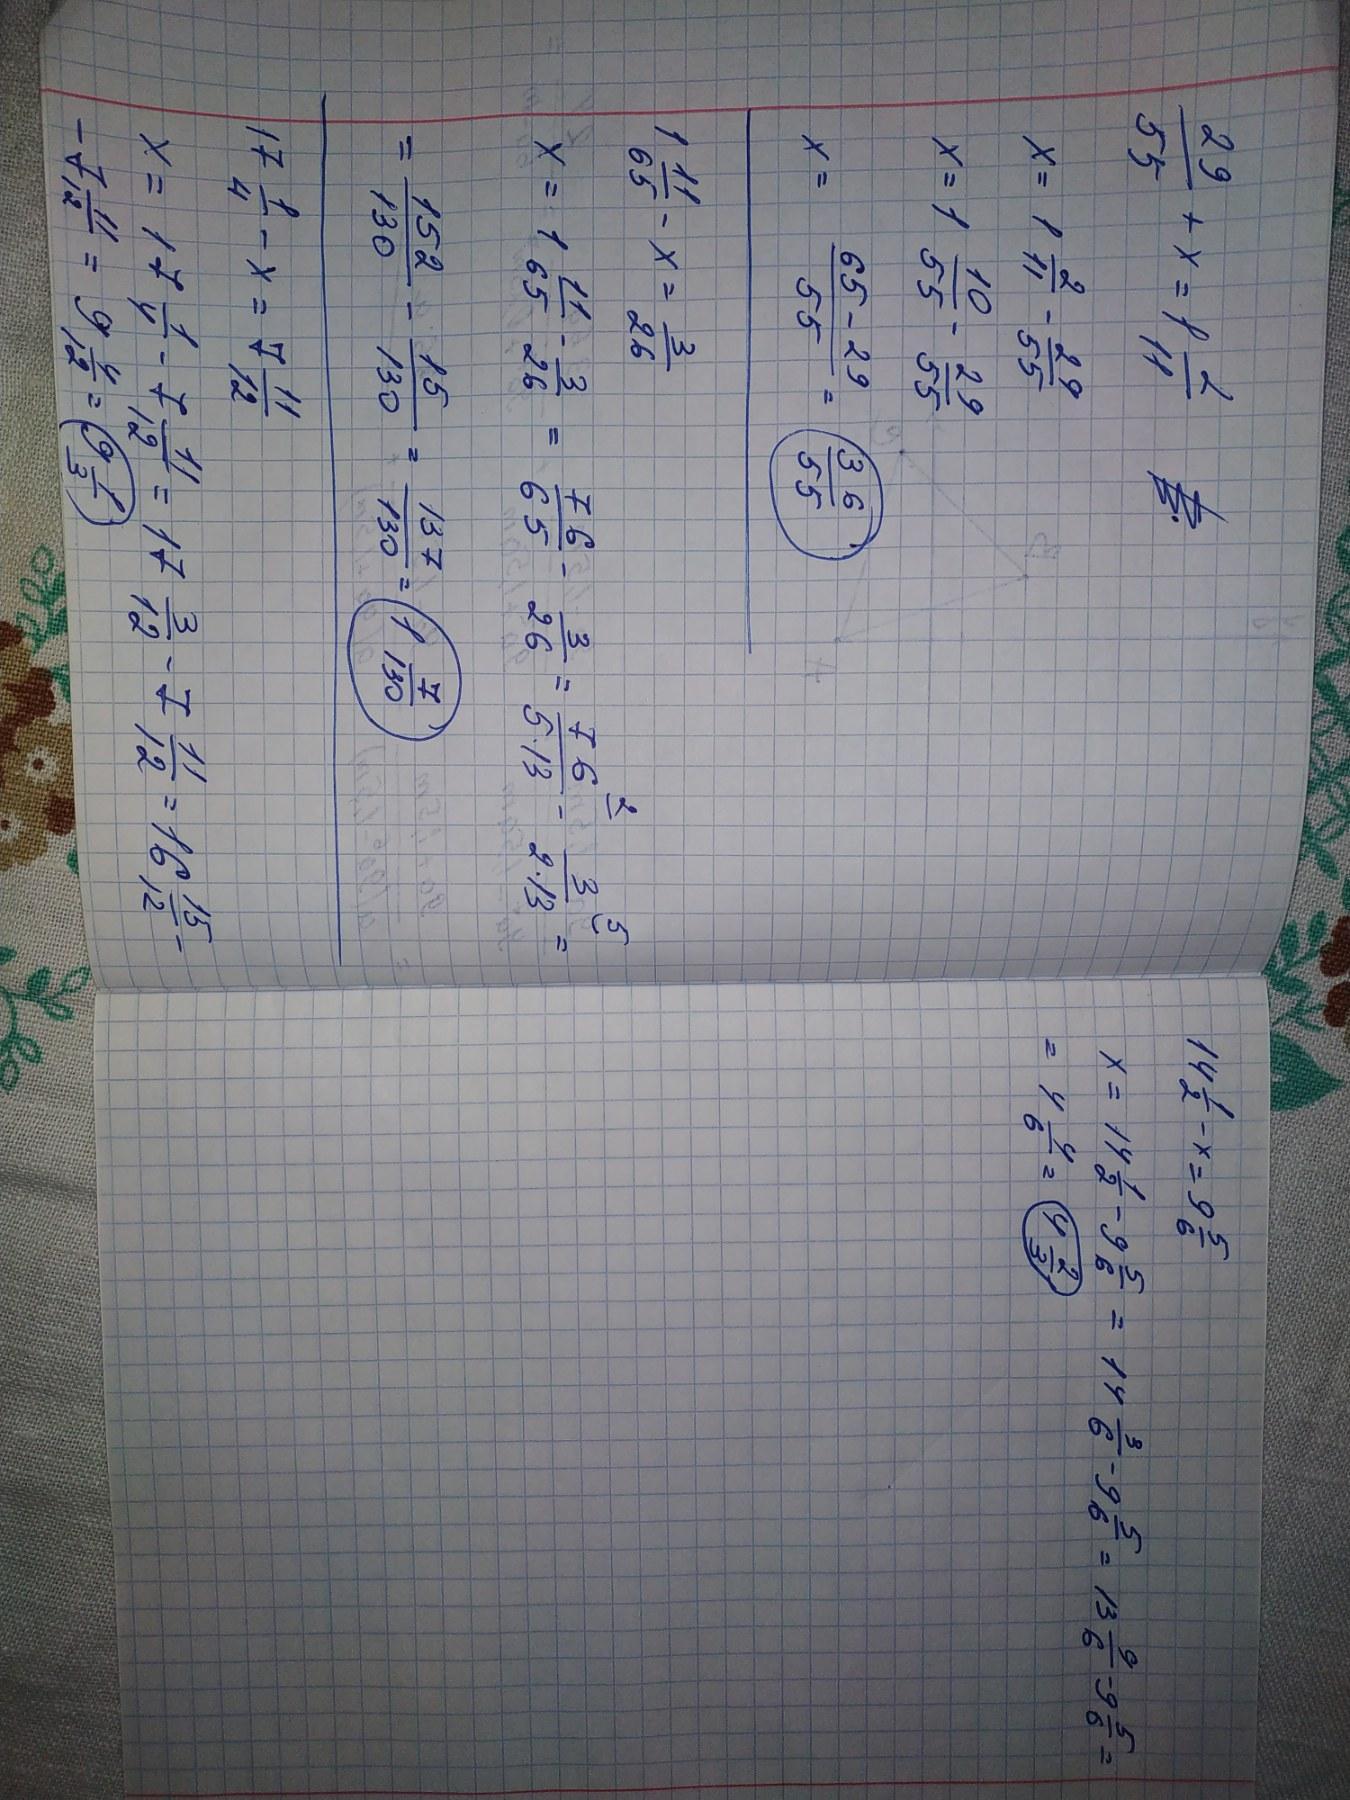 29/55 + x = 1 2/11
x = 1 2/11 - 29/55
x = 1 10/55 - 29/55
x = (65 - 29)/55 = 36/55
1 11/65 - x = 3/26
x = 1 11/65 - 3/26 = 76/65 - 3/26 = 76/(5·13) ² - 3/(2·13) ⁵ =
= 152/130 - 15/130 = 137/130 = 1 7/130
17 1/4 - x = 7 11/12
x = 17 1/4 - 7 11/12 = 17 3/12 - 7 11/12 = 16 15/12 -
- 7 11/12 = 9 4/12 = 9 1/3
14 1/2 - x = 9 5/6
x = 14 1/2 - 9 5/6 = 14 3/6 - 9 5/6 = 13 9/6 - 9 5/6 =
= 4 4/6 = 4 2/3